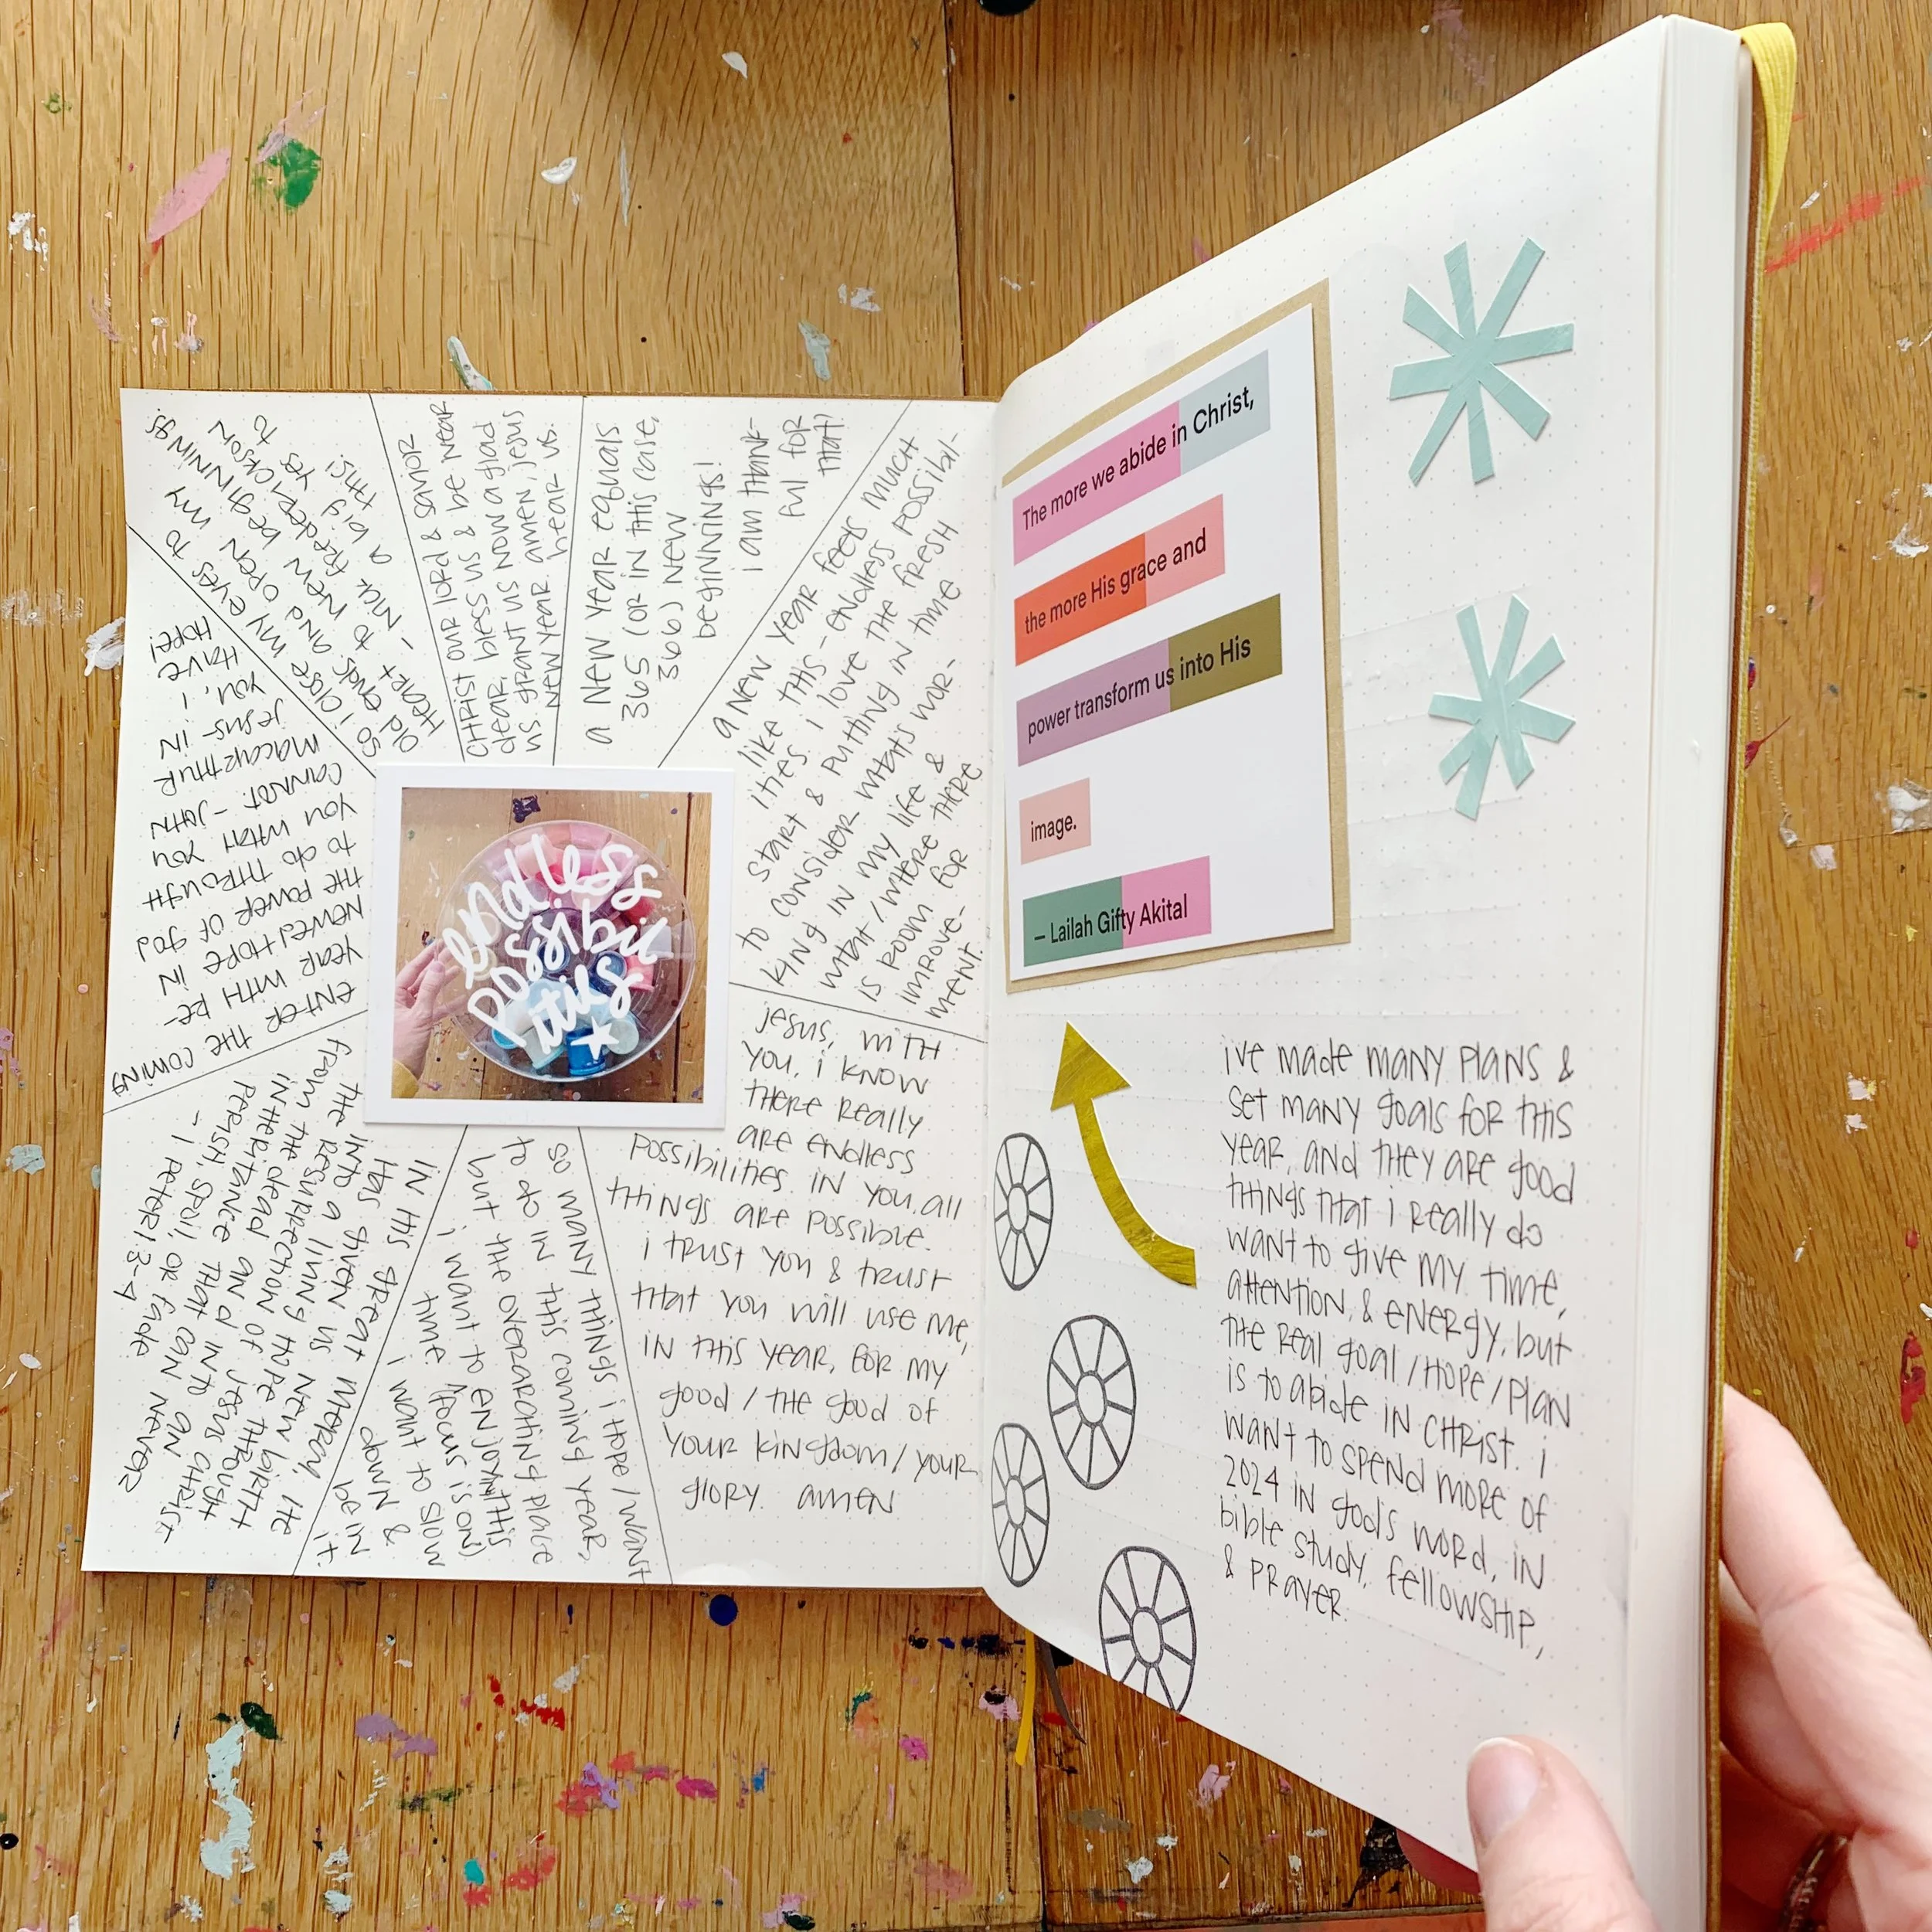 a new year feels much
like this – endless possibil-
ities. i love the fresh
start & putting in time
to consider what's wor-
king in my life &
what/where there
is room for
improve-
ment.
jesus, with
you, i know
there really
are endless
possibilities. in you, all
things are possible.
i trust you & trust
that you will use me,
in this year, for my
good / the good of
your kingdom / your
glory. amen
so many things i hope/want
to do in this coming year,
but the overarching place
i want to enjoy this
time. (focus is on)
i want to slow
down &
be in
it.
in his great mercy, he
has given us new birth
into a living hope through
the resurrection of jesus christ
from the dead and into an
inheritance that can never
perish, spoil, or fade
– 1 peter 1:3-4
enter the coming
year with re-
newed hope in
the power of god
to do through
you what you
cannot. – john
macarthur
jesus – in
you, i
have
hope!
so i close my eyes to
old ends, and open my
heart to new beginnings.
– nick frederickson
a big yes to
this!
christ our lord & savior
dear, bless us & be near
us grant us now a glad
new year. amen, jesus
hear us.
a new year equals
365 (or in this case,
366) new
beginnings!
i am thank-
ful for
that!
endless
possibil
ities
The more we abide in Christ,
the more His grace and
power transform us into His
image.
– Lailah Gifty Akital
ive made many plans &
set many goals for this
year, and they are good
things that i really do
want to give my time,
attention, & energy, but
the real goal/hope/plan
is to abide in christ. i
want to spend more of
2024 in god's word, in
bible study, fellowship,
& prayer.